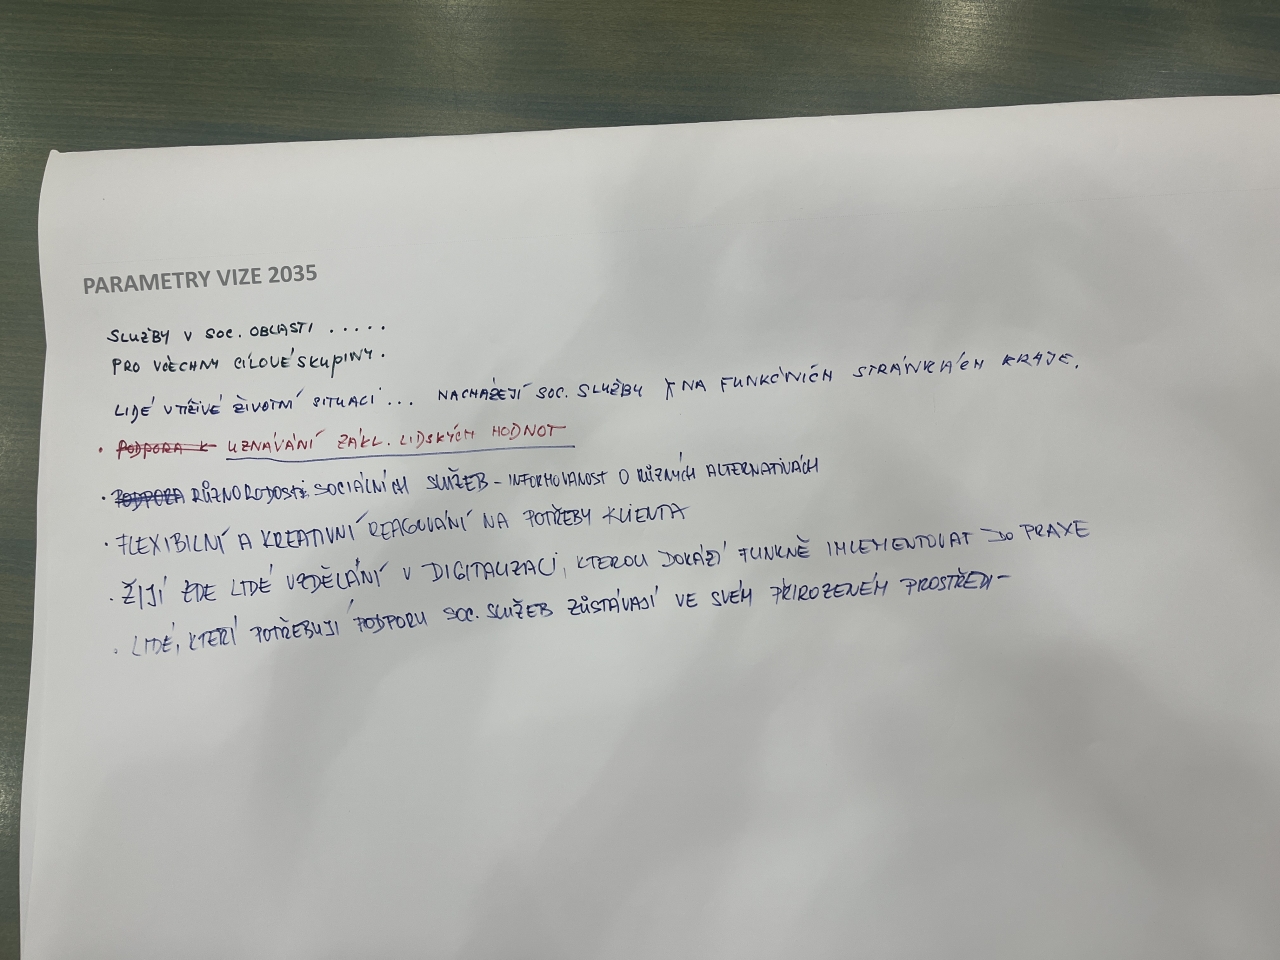 PARAMETRY VIZE 2035
SLUŽBY V SOC. OBLASTI .....
PRO VŠECHNY CÍLOVÉ SKUPINY.
LIDÉ V TÍŽIVÉ ŽIVOTNÍ SITUACI ... NACHÁZEJÍ SOC. SLUŽBY NA FUNKČNÍCH STRÁNKÁCH KRAJE.
• PODPORA K UZNÁVÁNÍ ZÁKL. LIDSKÝCH HODNOT
• PODPORA RŮZNORODOSTI SOCIÁLNÍCH SLUŽEB – INFORMOVANOST O RŮZNÝCH ALTERNATIVÁCH
• FLEXIBILNÍ A KREATIVNÍ REAGOVÁNÍ NA POTŘEBY KLIENTA
• ŽIJÍ ZDE LIDÉ VZDĚLÁNÍ V DIGITALIZACI, KTEROU DOKÁŽÍ FUNKNĚ IMLEMENTOVAT DO PRAXE
• LIDÉ, KTEŘÍ POTŘEBUJÍ PODPORU SOC. SLUŽEB ZŮSTÁVAJÍ VE SVÉM PŘIROZENÉM PROSTŘEDÍ